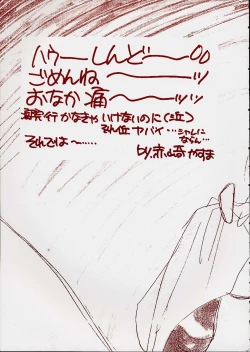 ハウーしんどーOO
ごめんね〜〜ッ
おなか痛〜〜ッッ
行かなきゃいけないのに(泣)
そん位ヤバイ…シャレにならん…
それでは〜……
by.赤山奇かずま